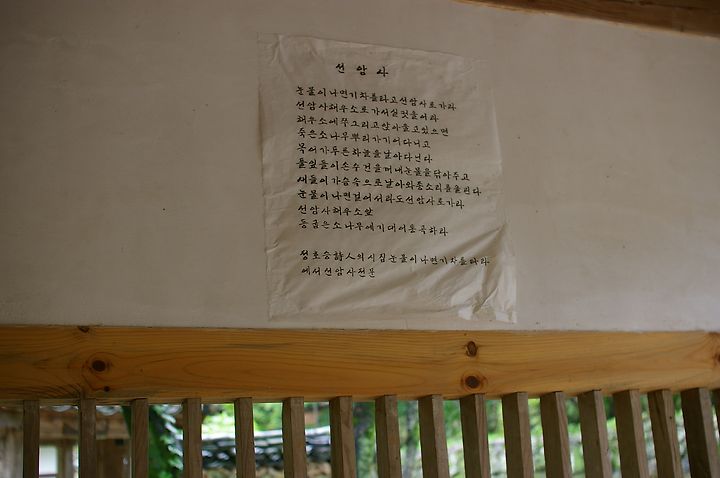 선 암 사
눈물이나면기차를타고선암사로가라
선암사해우소로가서실컷울어라
해우소에쭈그리고앉아울고있으면
죽은소나무뿌리가기어다니고
목어가푸른하늘을날아다닌다
풀잎들이손수건을꺼내눈물을닦아주고
새들이가슴속으로날아와종소리를울린다
눈물이나면걸어서라도선암사로가라
선암사해우소앞
등굽은소나무에기대어통곡하라
정호승詩人의시집눈물이나면기차를타라
에서선암사전문